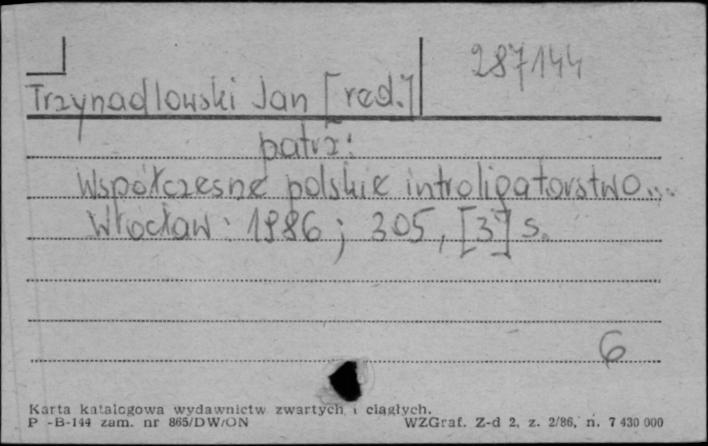 287144
Trzynadlowski Jan [red.]
patrz:
Współczesne polskie introligatorstwo...
Wrocław: 1986; 305, [3] s.
6
Karta katalogowa wydawnictw zwartych i ciągłych.
P -B-144 zam. nr 865/DW/ON
WZGraf. Z-d 2, z. 2/86, n. 7 430 000